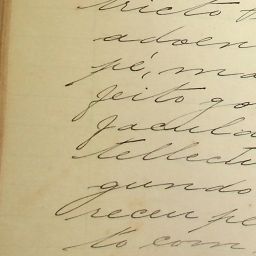 tricto
adoen
pé, ma
feito go
faculda
tellectu
gundo
receu pe
to com